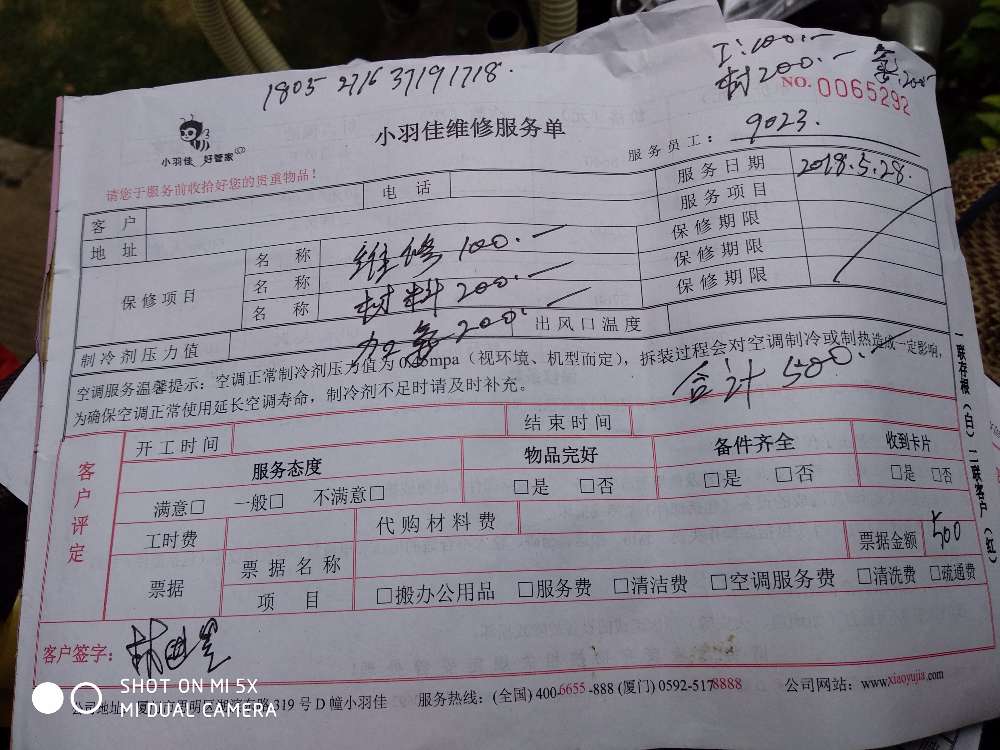 1805 2716 37191718.
工:100.-
材200.- 氟:200-
NO. 0065292
小羽佳 好管家
小羽佳维修服务单
服务员工: 9023.
请您于服务前收拾好您的贵重物品!
客户 电话 服务日期 2018.5.28.
地址 服务项目
保修项目 名称 维修 100.- 保修期限
名称 材料 200.- 保修期限
名称 加氟 200.- 保修期限
制冷剂压力值 出风口温度
空调服务温馨提示:空调正常制冷剂压力值为0. mpa(视环境、机型而定),拆装过程会对空调制冷或制热造成一定影响,
为确保空调正常使用延长空调寿命,制冷剂不足时请及时补充。
合计 500.-
客户评定
开工时间 结束时间
服务态度 物品完好 备件齐全 收到卡片
满意□ 一般□ 不满意□ □是 □否 □是 □否 □是 □否
工时费 代购材料费
票据 票据名称 票据金额 500
项目 □搬办公用品 □服务费 □清洁费 □空调服务费 □清洗费 □疏通费
一联存根(白) 二联客户(红)
客户签字:
SHOT ON MI 5X
MI DUAL CAMERA
公司地址: 319号D幢小羽佳 服务热线:(全国) 400-6655-888 (厦门) 0592-5178888 公司网站:www.xiaoyujia.com